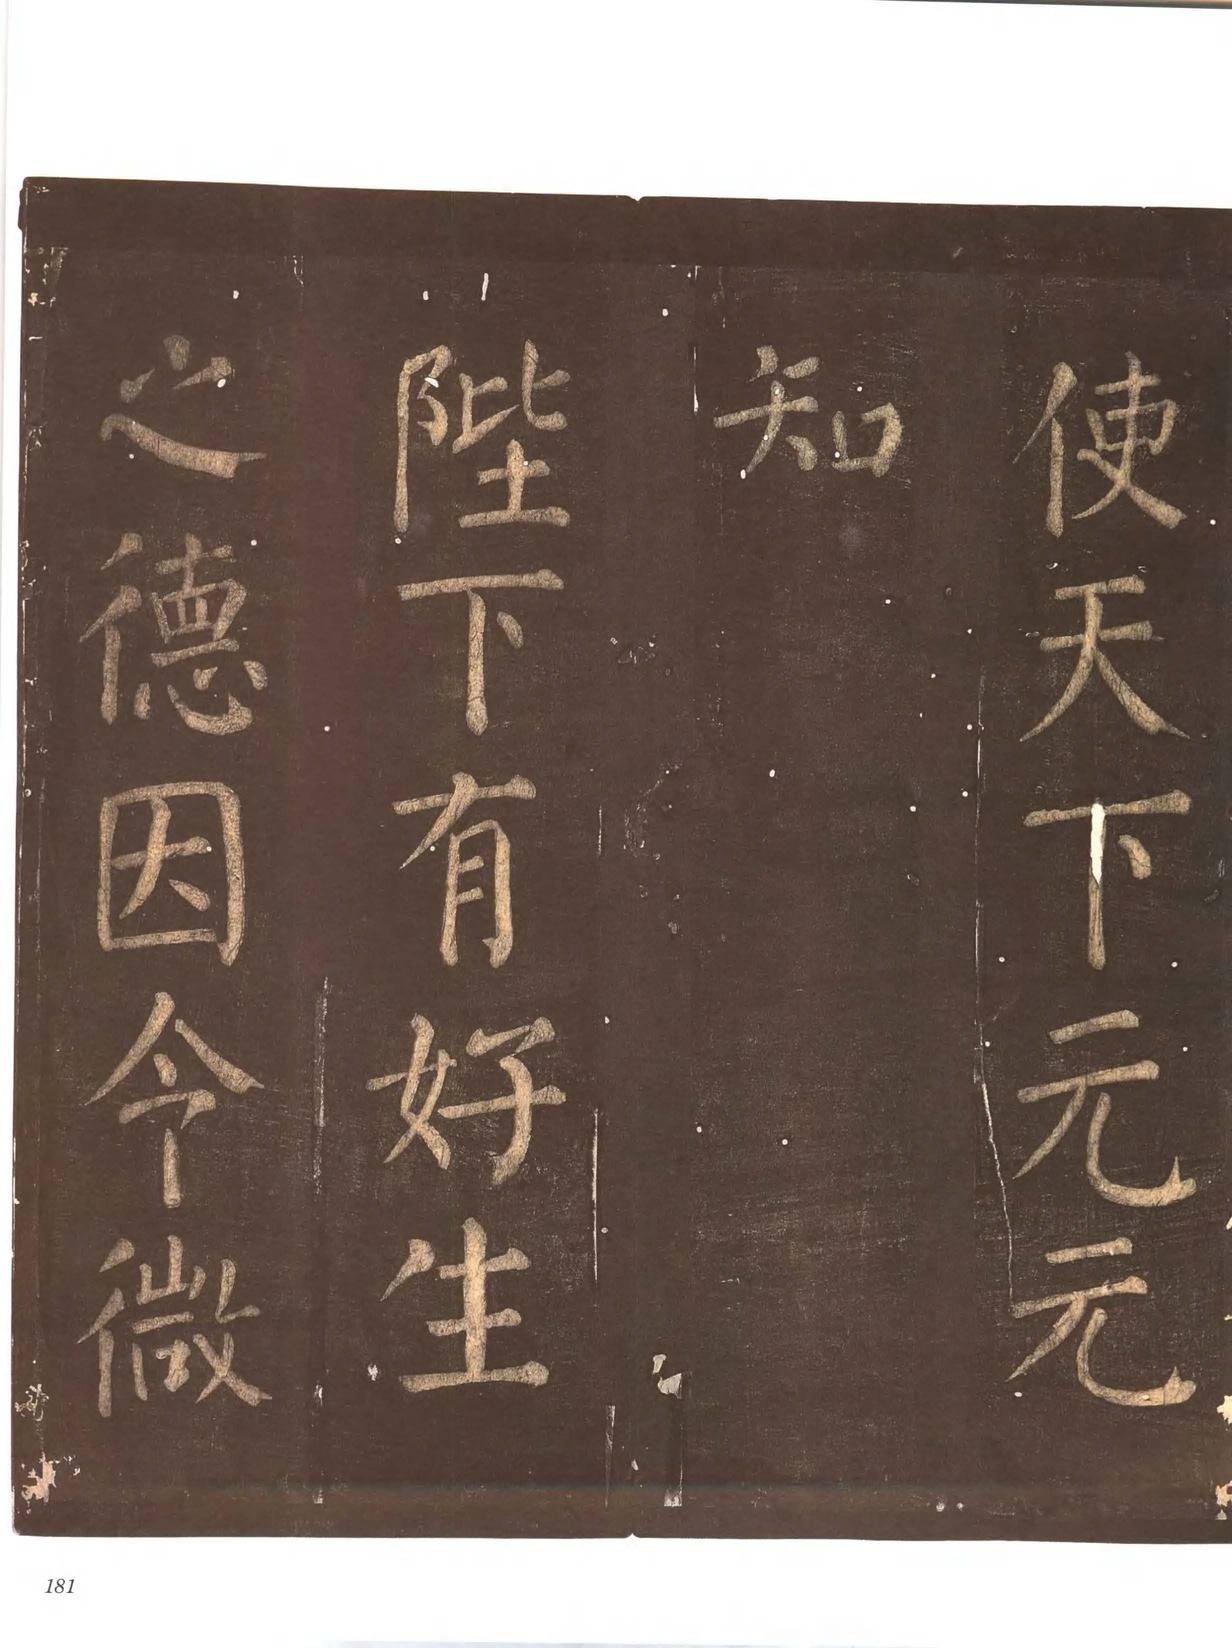 使天下元元
知
陛下有好生
之德因令微
181